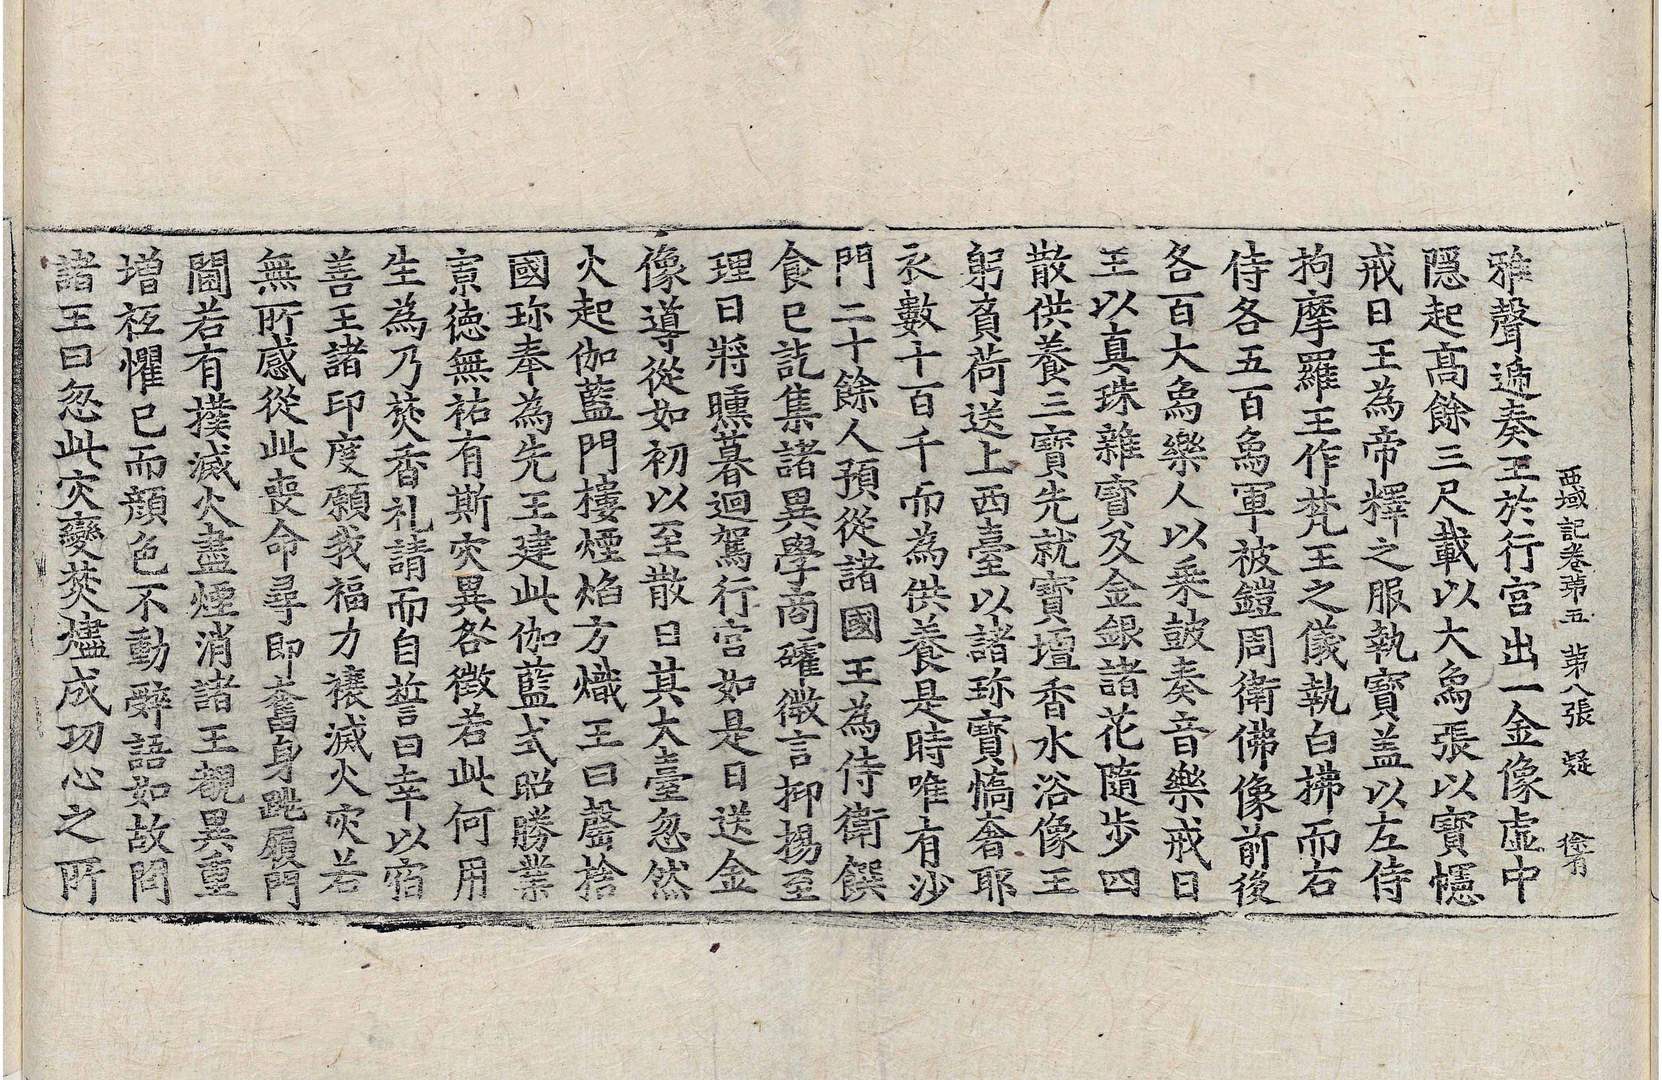 西域記卷苐五　苐八張　㠜　徐有
雅聲遞奏王於行宮出一金像虛中
隱起高餘三尺載以大象張以寶幰
戒日王為帝釋之服執寶盖以左侍
拘摩羅王作梵王之儀執白拂而右
侍各五百象軍被鎧周衛佛像前後
各百大象樂人以乘鼓奏音樂戒日
王以真珠雜寶及金銀諸花隨步四
散供養三寶先就寶壇香水浴像王
躬負荷送上西臺以諸珎寶憍奢耶
衣數十百千而為供養是時唯有沙
門二十餘人預從諸國王為侍衛饌
食已訖集諸異學商㩁微言抑揚至
理日將曛暮迴駕行宮如是日送金
像導從如初以至散日其大臺忽然
火起伽藍門樓煙焰方熾王曰罄捨
國珎奉為先王建此伽藍式昭勝業
寡德無祐有斯灾異咎徵若此何用
生為乃焚香礼請而自誓曰幸以宿
善王諸印度願我福力禳滅火灾若
無所感從此喪命尋即奮身跳履門
閫若有撲滅火盡煙消諸王覩異重
增祗懼已而顔色不動辭語如故問
諸王曰忽此灾變焚燼成功心之所